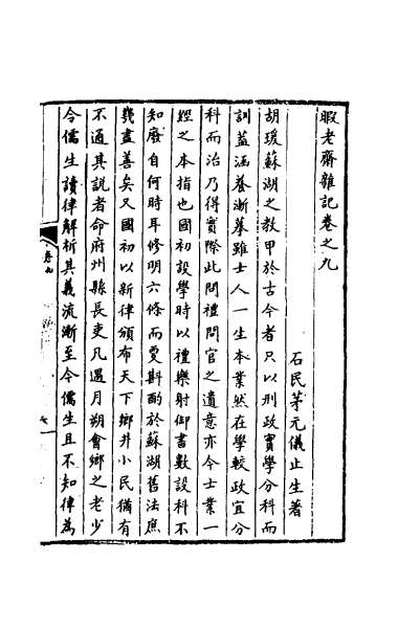 暇老齋雜記卷之九
石民茅元儀止生著
胡瑗蘇湖之教甲於古今者只以刑政實學分科而
訓蓋涵養漸摹雖士人一生本業然在學較政宜分
科而治乃得實際此問禮問官之遺意亦今士業一
經之本指也國初設學時以禮樂射御書數設科不
知廢自何時耳修明六條而更斟酌於蘇湖舊法庶
幾盡善矣又國初以新律頒布天下鄉井小民猶有
不通其說者命府州縣長吏凡遇月朔會鄉之老少
令儒生讀律解析其義流漸至今儒生且不知律為
卷九